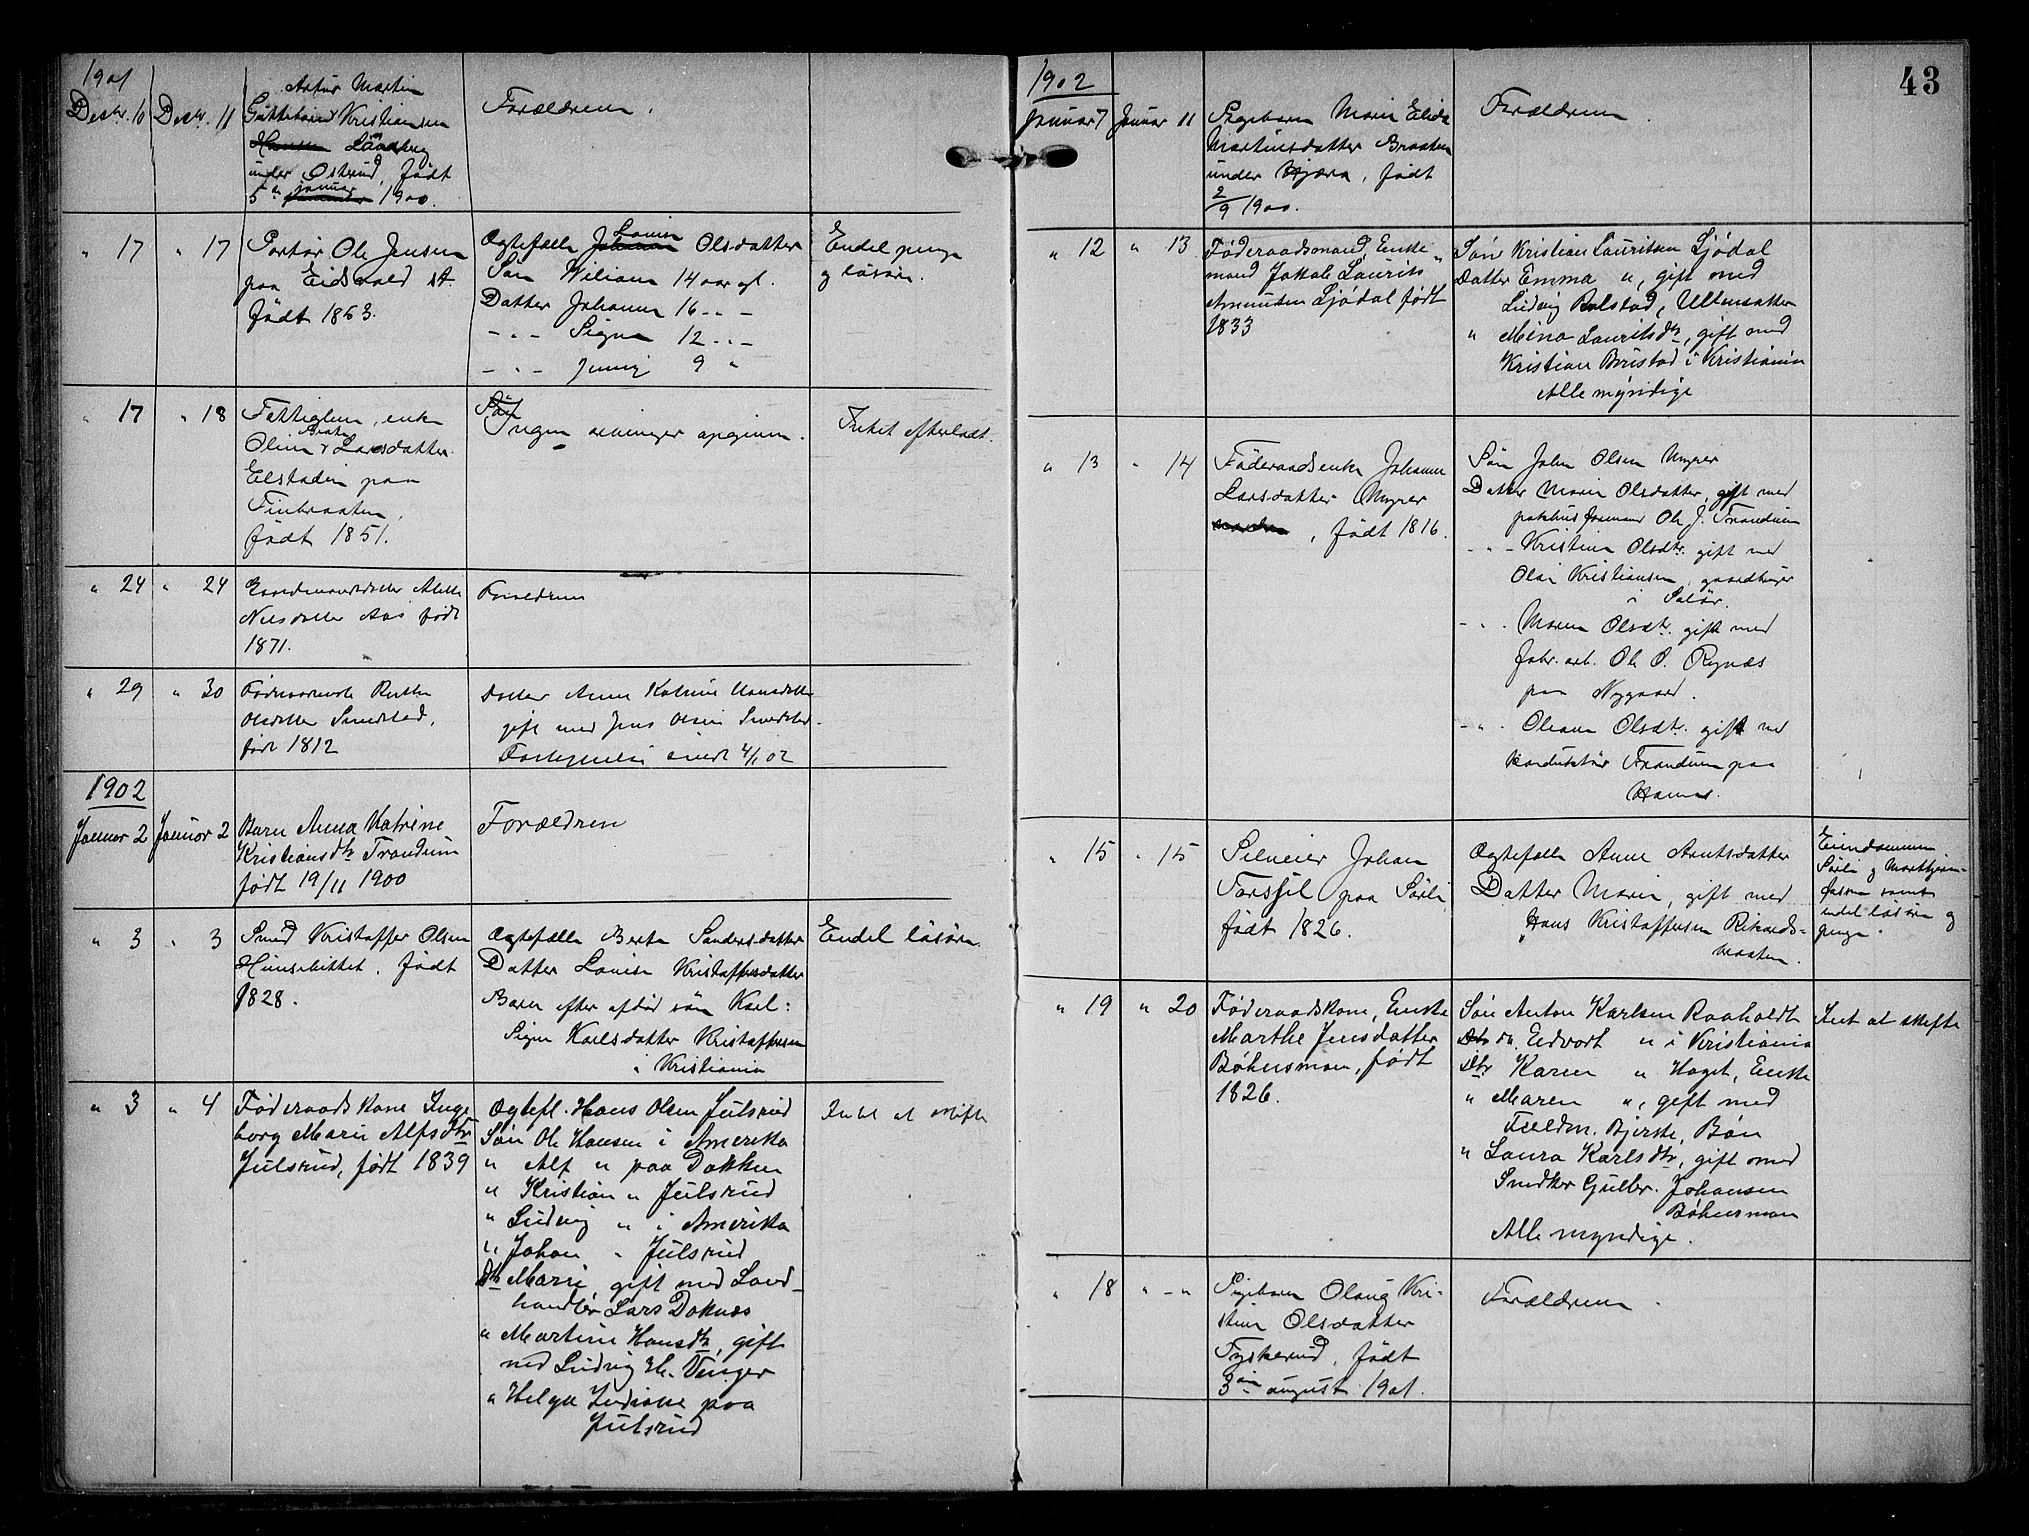 1901
Artur Martin
Decbr. 10 Decbr. 11 Guttebarn Kristiansen Forældrene.
Hansen
under Østerud, født
5te januar 1900.
" 17 " 17 Portør Ole Jensen
paa Eidsvold st.
født 1863.
Ægtefælle Johanne Louise Olsdatter
Søn Wiliam 14 aar gl.
Datter Johanne 16 - " -
- " - Signe 12 - " -
- " - Jenny 9 "
Endel penge
og løsøre.
" 17 " 18 Fattiglem, enke
Oline Larsdatter
Elstadeie paa
Finbraaten,
født 1851.
Ingen arvinger opgivne.
Intet efterladt.
" 24 " 24 Gaardmandsdatter
Nilsdatter Aas født
1871.
Forældrene
" 29 " 30
Olsdatter Smedstad,
født 1812
Datter Anne Katrine Hansdatter
gift med Jens Olsen Smedstad.
4/1 02
1902
Januar 2 Januar 2 Barn Anna Katrine
Kristiansdtr Trandum
født 19/11 1900
Forældrene
" 3 " 3 Smed Kristoffer Olsen
født
1828.
Ægtefælle Berte Sandersdatter
Datter Louise Kristoffersdatter
Barn efter afdød søn Karl:
Signe Karlsdatter Kristoffersen
i Kristiania
Endel løsøre.
" 3 " 4 Føderaadskone Inge
borg Marie Alfsdtr
Julsrud, født 1839
Ægtef. Hans Olsen Julsrud
Søn Ole Hansen i Amerika
" Alf " paa Dokken
" Kristian " Julsrud
" Ludvig " i Amerika
" Johan " Julsrud
Dtr Marie gift med Land-
handler Lars Doknæs
" Martine Hansdtr, gift
med Ludvig H. Venger
" Helga Indiane paa
Julsrud
Intet at skifte
43
1902
Januar 7 Januar 11 Pigebarn Marie Elida
Martinsdatter Braaten
under Hjæra, født
2/9 1900.
Forældrene.
" 12 " 13 Føderaadsmand, Enke-
mand Jakob Laurits
Amundsen Ljødal født
1833
Søn Kristian Lauritsen Ljødal
Datter Emma ", gift med
Ludvig Bolstad, Ullensaker
" Mina Lauritsdtr, gift med
Kristian i Kristiania
Alle myndige
" 13 " 14 Føderaadsenke Johanne
Larsdatter Myrer
, født 1816.
Søn John Olsen Myrer
Datter Marie Olsdatter, gift med
pakhusformand Ole J. Trandum
- " - Kristine Olsdtr. gift med
Olai Kristiansen, gaardbruger
i Solør.
- " - Maren Olsdtr. gift med
fabr. arb. Ole O. Rynæs
paa Nygaard.
- " - Oleane Olsdtr. gift med
konduktør Trandum paa
Hamar.
" 15 " 15 Selveier Johan
Torsfil paa Sørli
født 1826.
Ægtefælle Anne Arntsdatter
Datter Marie, gift med
Hans Kristoffersen Rikards-
braaten.
Eiendommen
Sørli og
samt
endel løsøre og
penge.
" 19 " 20 Føderaadskone, Enke
Marthe Jensdatter
Bøhnsmoen, født
1826.
Søn Anton Karlsen Raaholdt
do. Edvart " i Kristiania
Dtr Karen " Haget, Enke
" Maren ", gift med
Feldm. Bjerke, Bøn
" Laura Karlsdtr, gift med
Snedker Gulbr. Johansen
Bøhnsmoen
Alle myndige.
Intet at skifte
" 18 " - " Pigebarn Olaug Kri-
stine Olsdatter
Tyskerud, født
3die august 1901.
Forældrene.